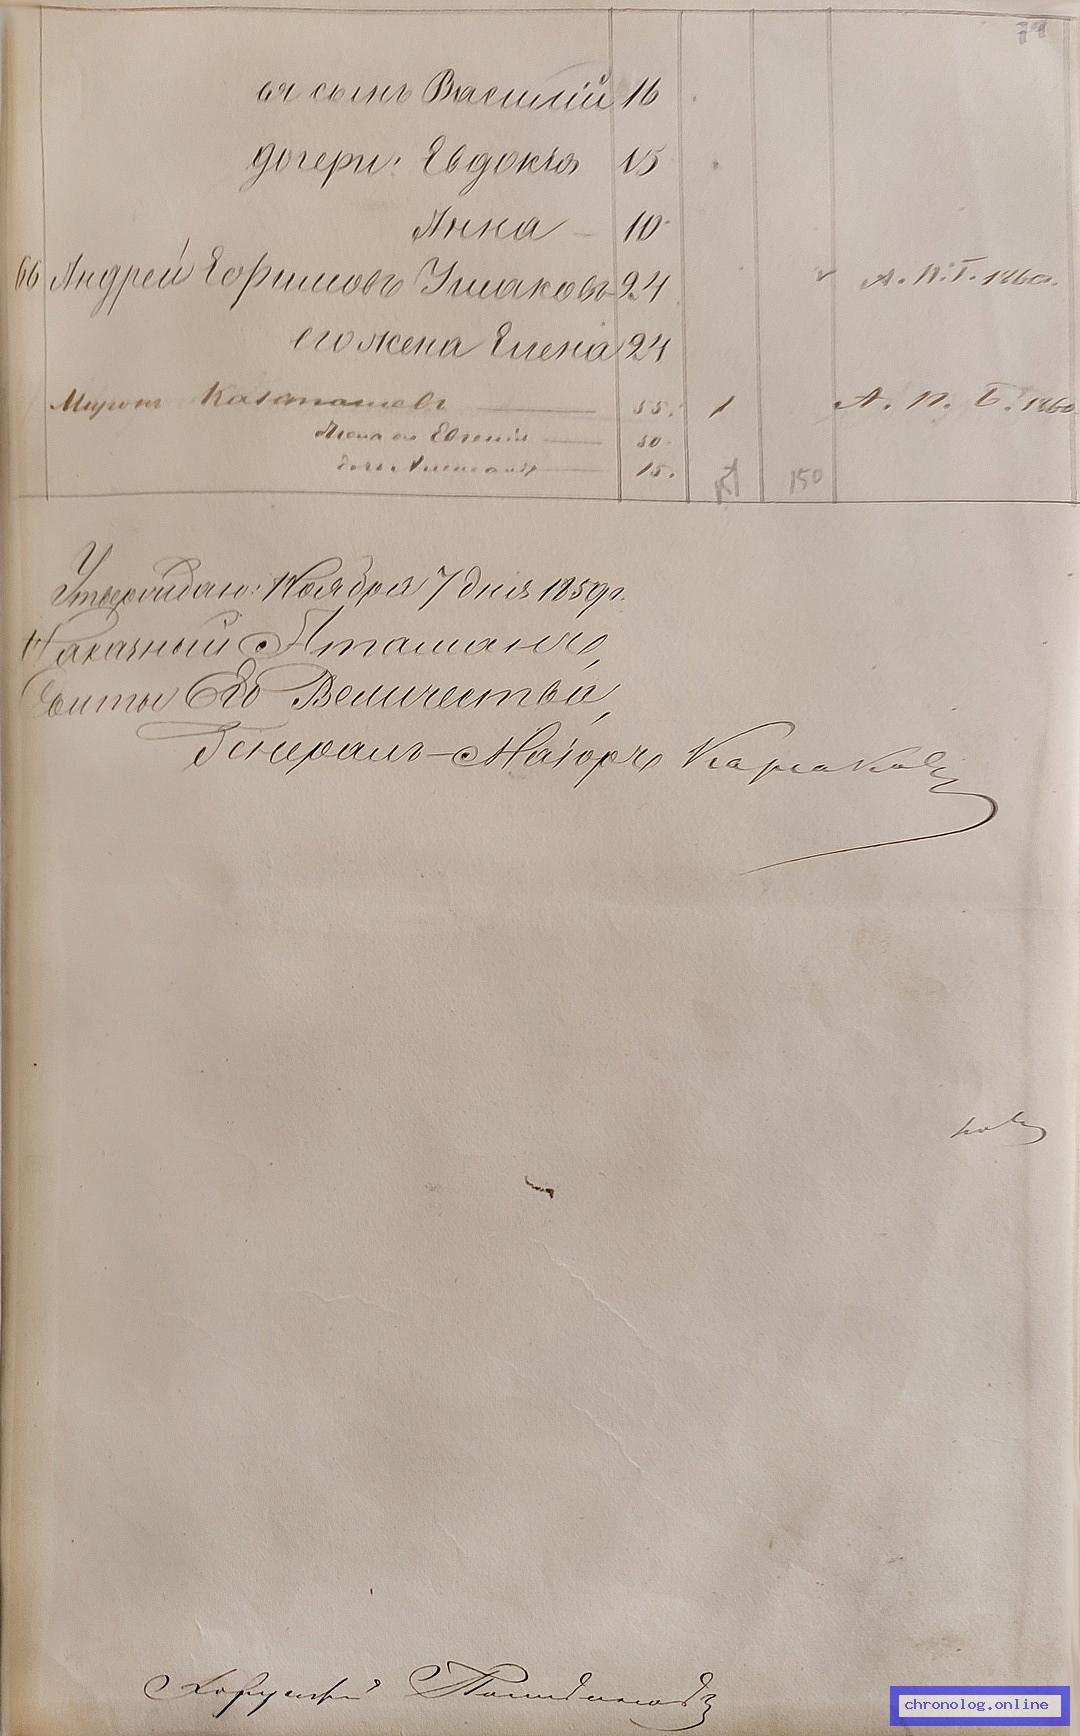 74
ея сынъ Василій 16
дочери: Евдокія 15
Анна – 10
66 Андрей Ефимовъ Ушаковъ 24 А. П. Г. 1860.
его жена Елена 24
Миронъ 55. 1 А. П. Г. 1860
жена его Евгенія 50.
дочь Александра 15. 150
Утверждаю: Ноября 7 дня 1859 г.
Наказный Атаманъ,
Свиты Его Величества,
Генералъ-Маіоръ
ковъ
Хорунжій
chronolog.online